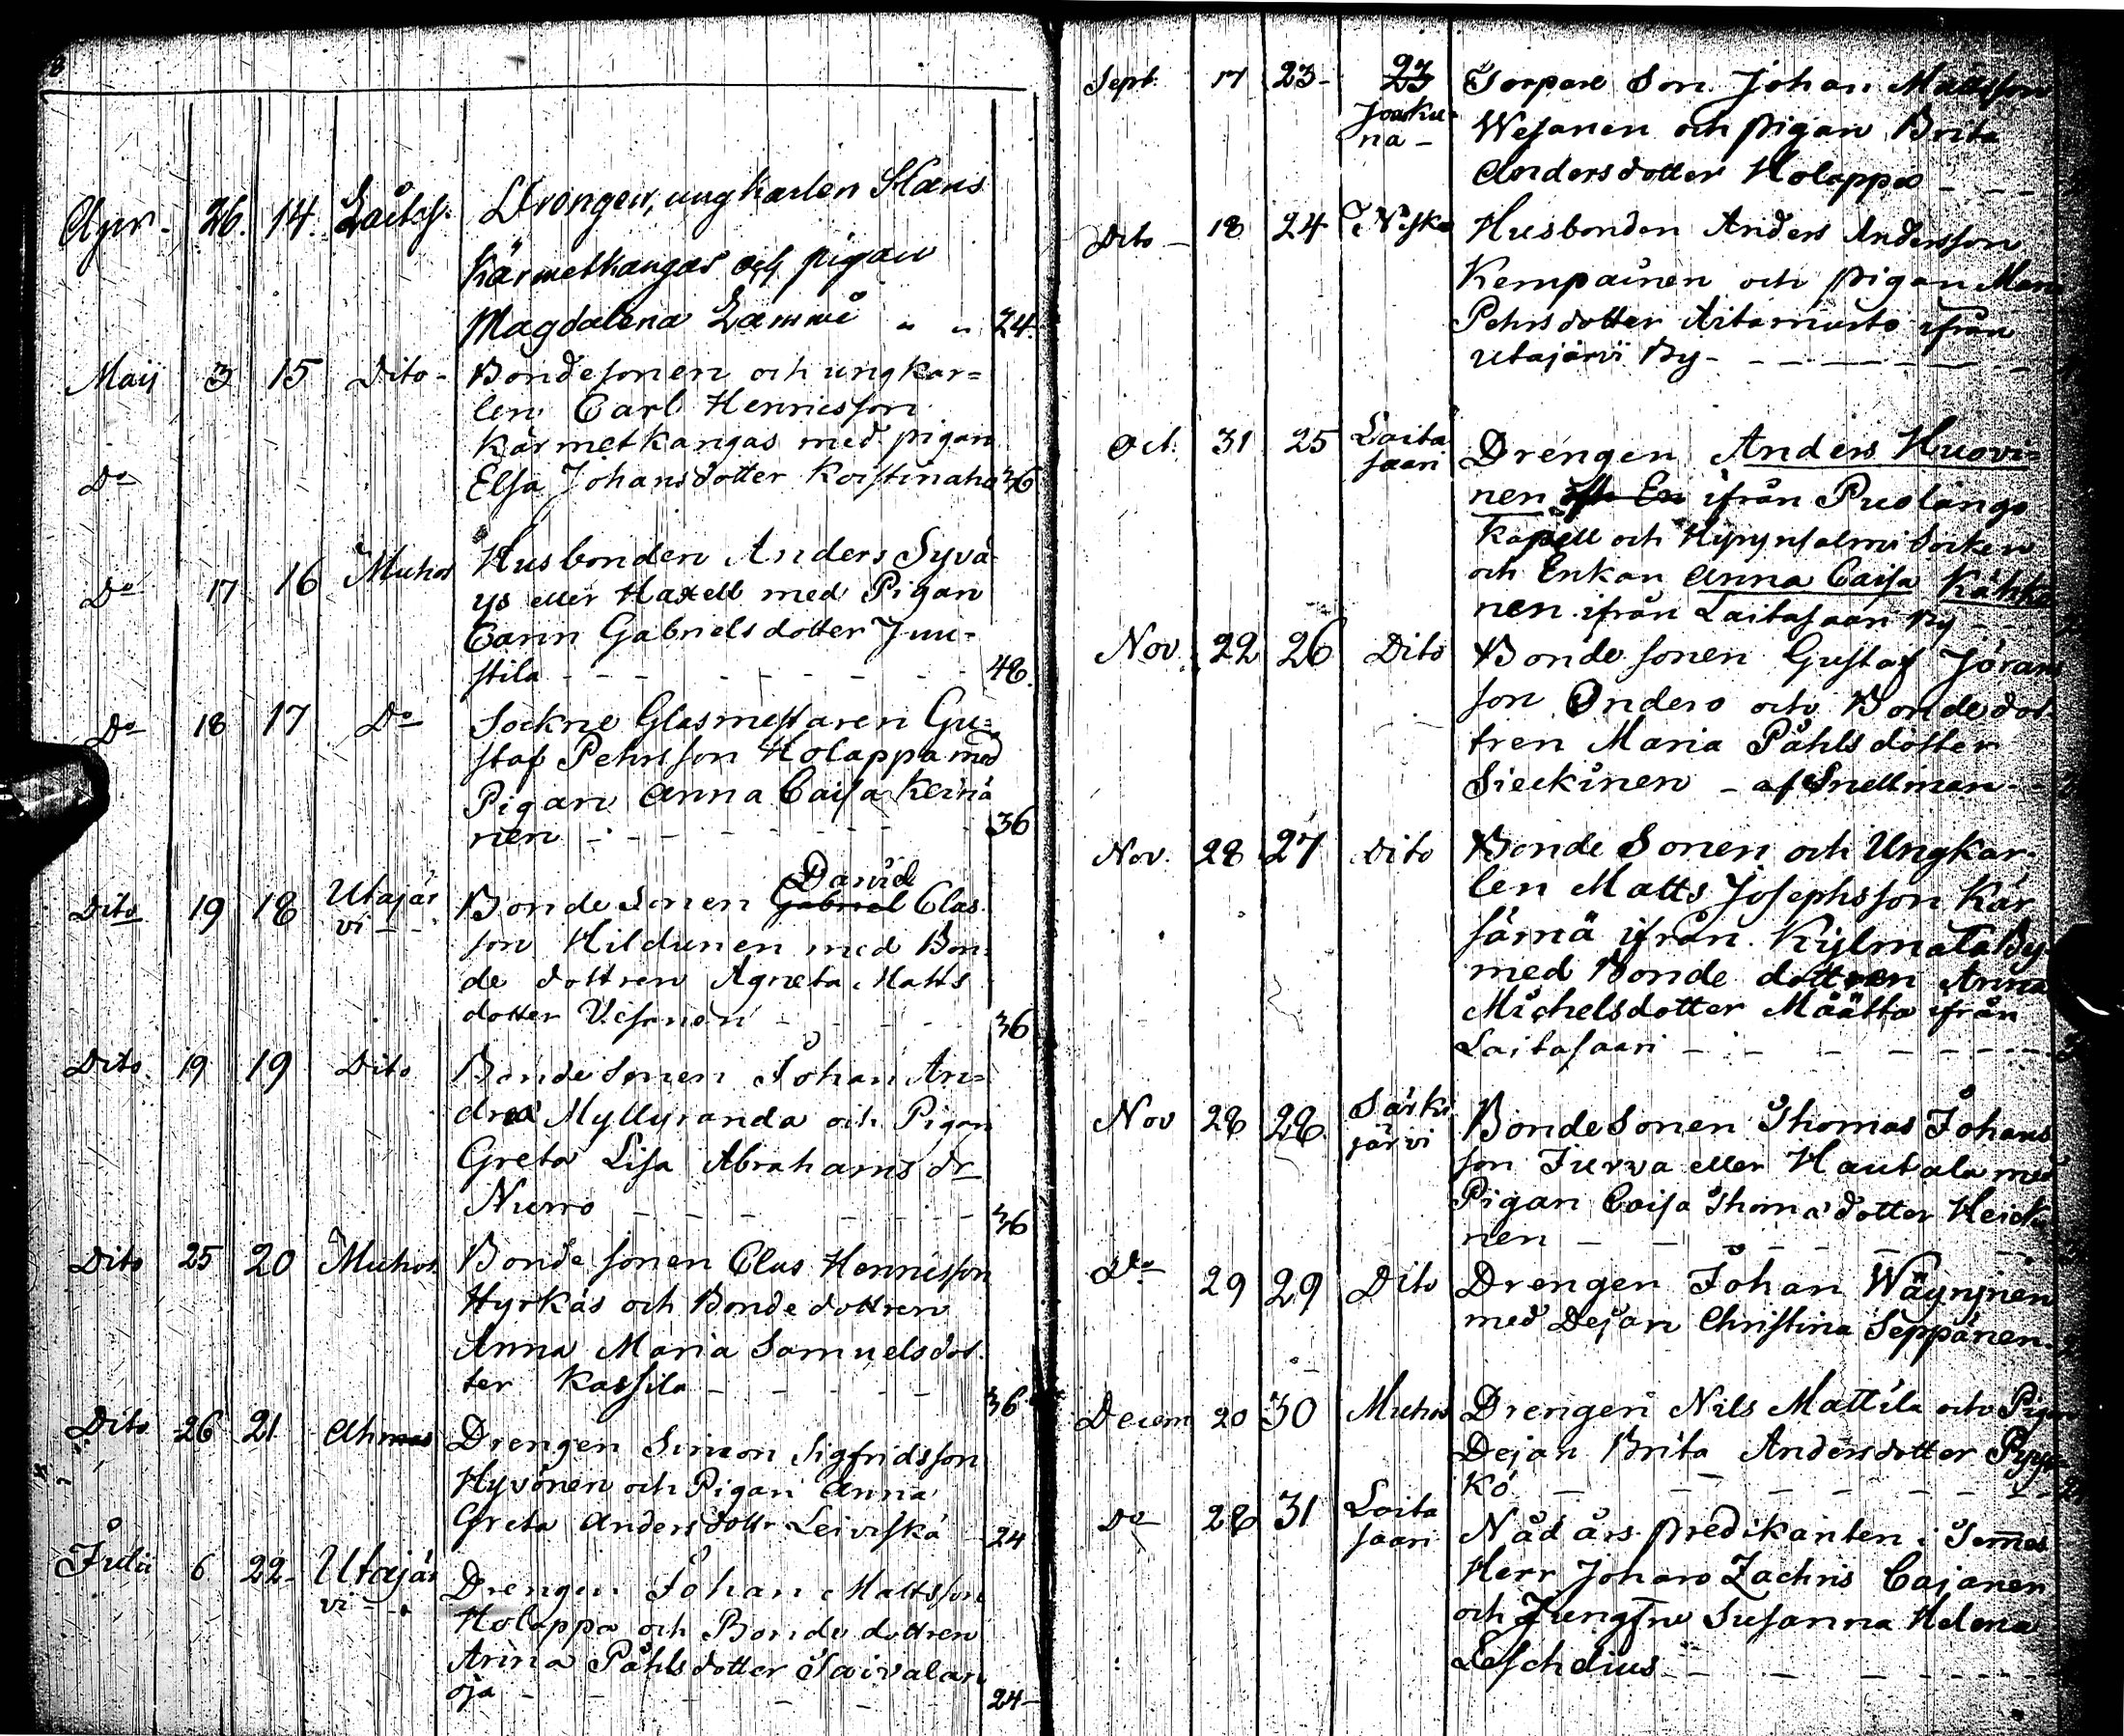 Apr. 26. 14. Laitas. Drengen, ungkarlen Hans
Kärmetkangas och pigan
Magdalena Lammi " " 24.
Maij 3 15 Dito - Bondesonen och ungkar=
len Carl Henricsson
Kärmetkangas med pigan
Do Elsa Johansdotter Koistinaho 36
Do 17 16 Muhos Husbonden Anders Syvä
ys eller Haxell med Pigan
Carin Gabrielsdotter Juu-
stila - - - - - - - 48.
Do 18 17 Do Sockne Glasmestaren Gu=
staf Pehrsson Holappa med
Pigan Anna Caisa Keinä
nen - - - - - - - 36
David
Dito 19 18 Utajär Bonde Sonen Gabriel Clas
vi - - son Hildunen med Bon=
de dottren Agneta Matts
dotter Vesanen - - - - 36
Dito 19 19 Dito Bonde Sonen Johan An=
drea Myllyranda och Pigan
Greta Lisa Abrahams dr
Nurro - - - - - - 36
Dito 25 20 Muhos Bonde sonen Clas Henricsson
Hyrkäs och Bonde dottren
Anna Maria Samuelsdot
ter Kassila - - - - - 36
Dito 26 21 Ahmas Drengen Simon Sigfridsson
Hyvönen och Pigan Anna
Greta Anders dottr Leiviskä 24
Julii 6 22- Utajär Drengen Johan Mattsson
vi - - Holappa och Bonde dottren
Anna Påhlsdotter Taivalan
oja - - - - - 24-
Sept. 17 23- 23 Torpare Son Johan Mattsson
Joaku- Wesanen och pigan Brita
na - Andersdotter Holappa - - -
Dito - 18 24 Niska Husbonden Anders Andersson
Kempainen och pigan
Pehrsdotter Aitamurto ifrån
Utajärvi By - - - - - -
Oct. 31 25 Laita Drengen Anders Huovi=
saari nen ifrån Puolango
Kapell och Hyrynsalmi Socken
och Enkan Anna Caisa Kähkö
nen ifrån Laitasaari By - -
Nov. 22 26 Dito Bonde sonen Gustaf Jörans
son Onders och Bonde dot
tren Maria Påhlsdotter
Sieckinen - af Snellman - -
Nov. 28 27 Dito Bonde Sonen och Ungkar-
len Matts Josephsson Kär
särnä ifrån Kylmälä By
med Bonde dottren Anna
Michelsdotter Määtta ifrån
Laitasaari - - - - - - -
Nov 28 28. Särki Bonde Sonen Thomas Johans
järvi son Jurva eller Hautala med
Pigan Caisa Thoma dotter Heicki
nen - - - - - -
Do 29 29 Dito Drengen Johan Wäyrynen
med Dejan Christina Seppänen -
Decem 20 30 Muhos Drengen Nils Mattila och Pigan
Dejan Brita Andersdotter Pyyk
kö - - - - - - -
Do 28 31 Laita Nåd års predikanten i Sotkamo
saari Herr Johan Zachris Cajanen
och Jungfru Susanna Helena
Leschelius - - - - - -